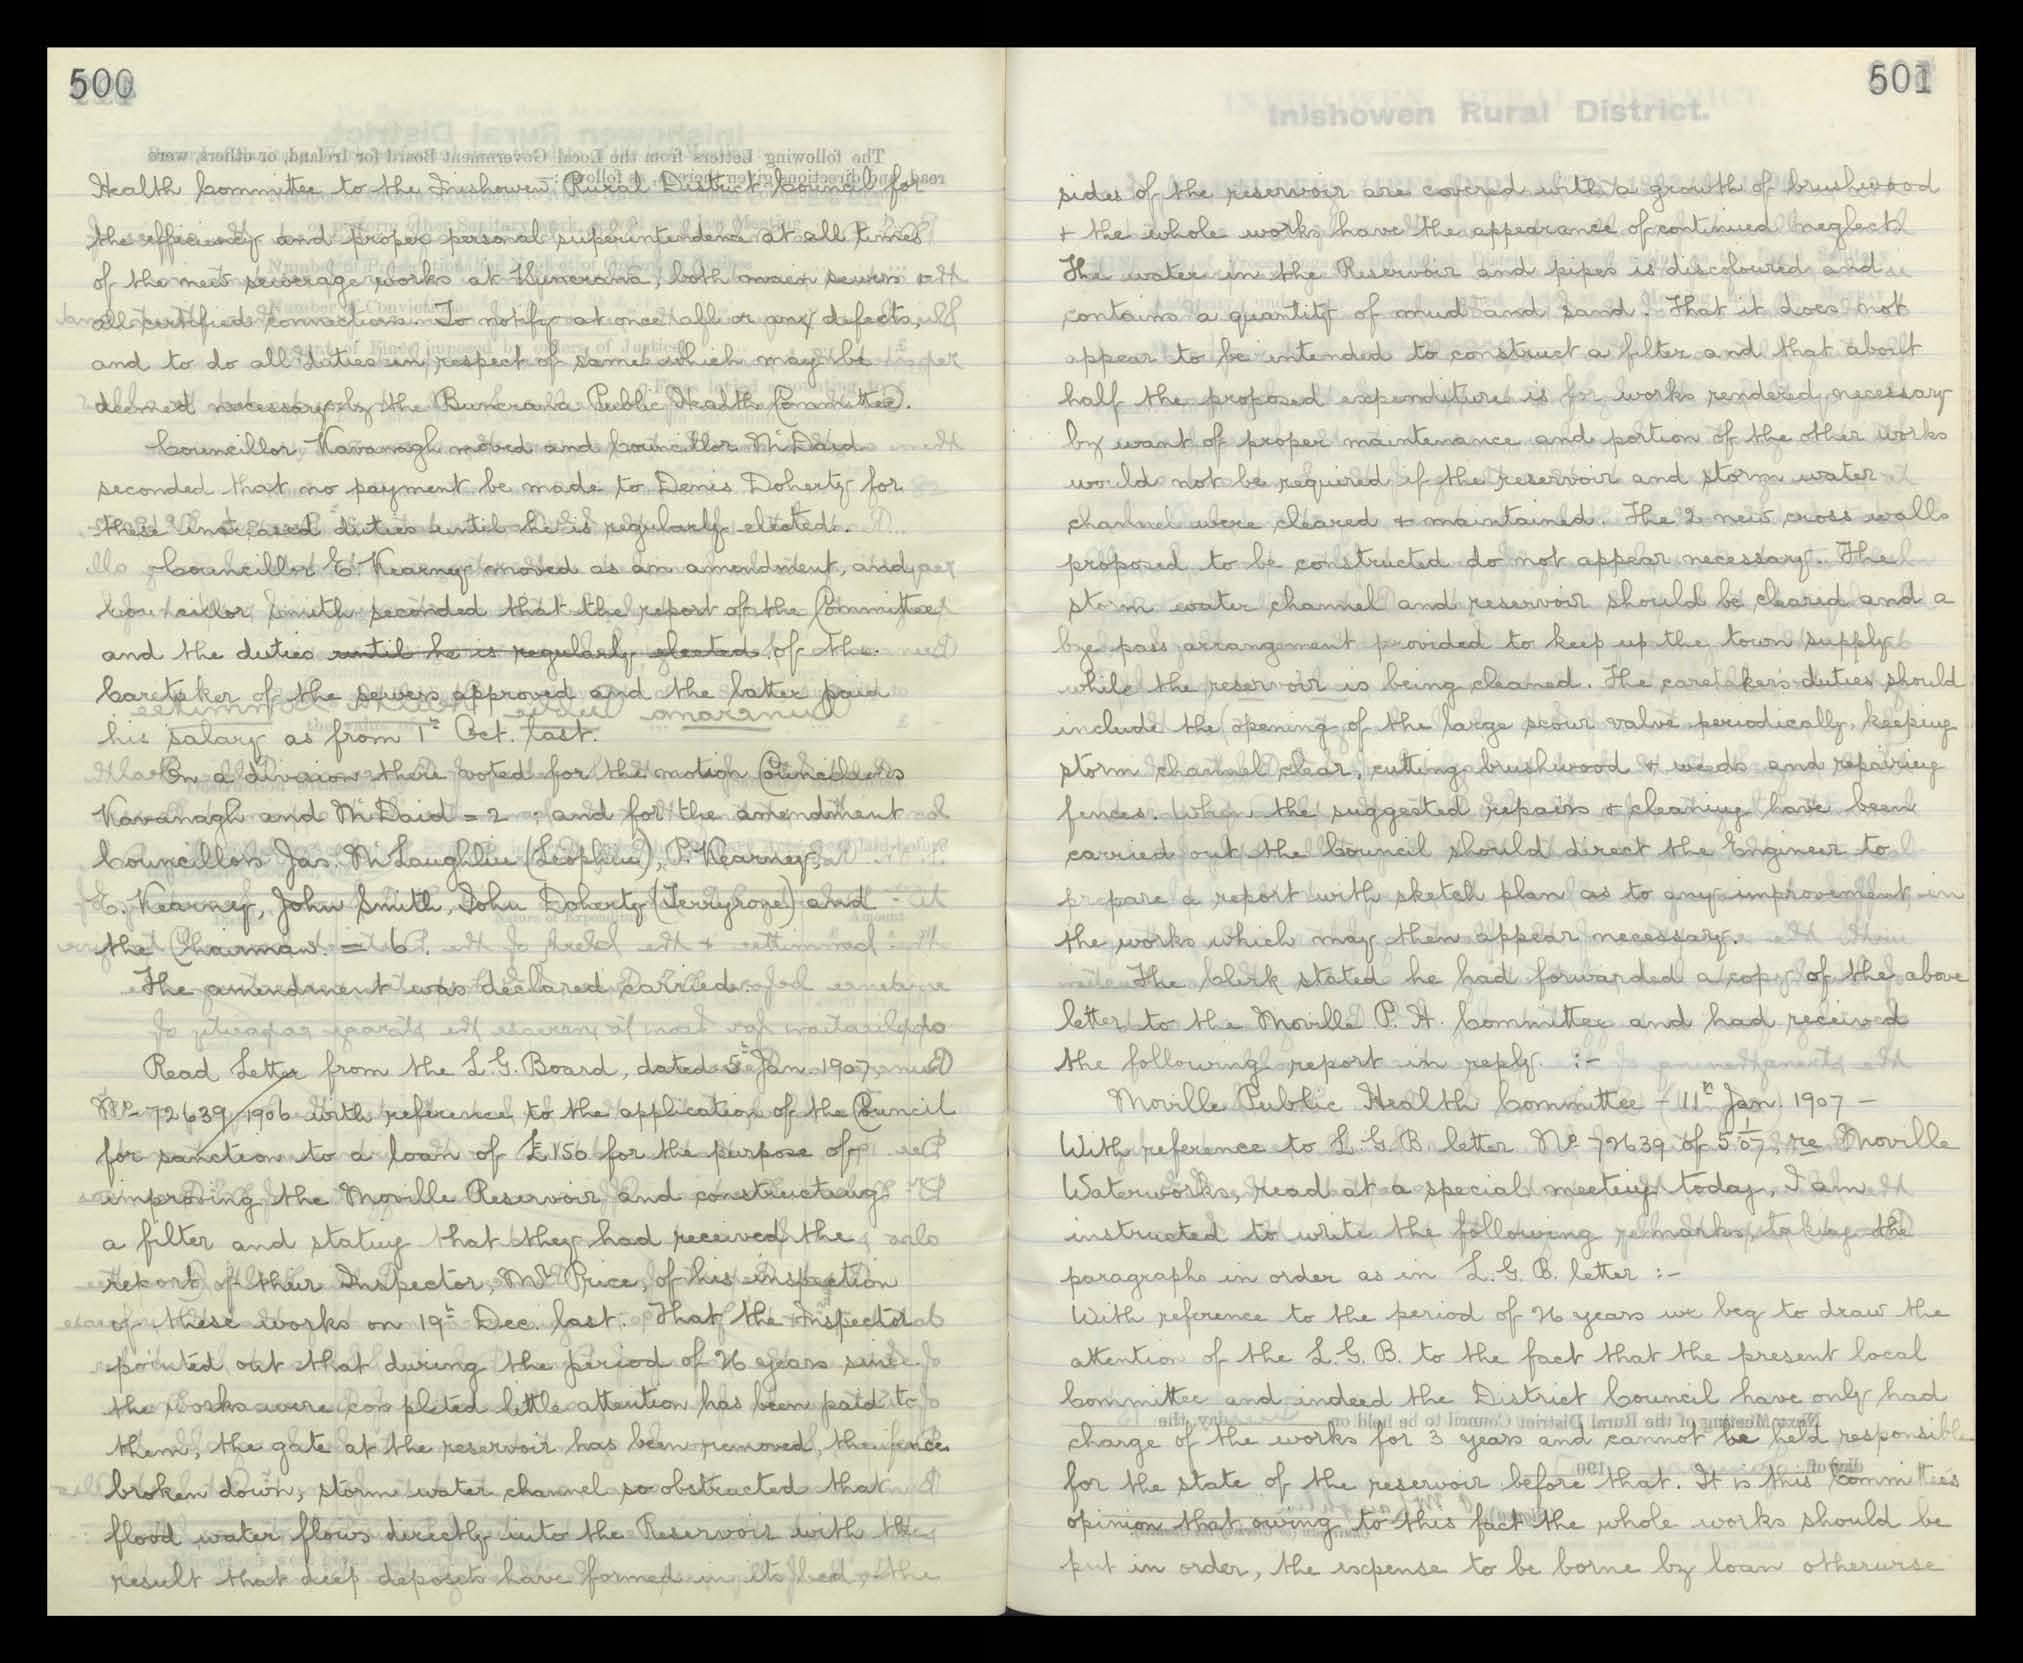 500
Health Committee to the Inishowen Rural District Council for
the efficiency and proper personal superintendence at all times
of the new sewerage works at Buncrana, both main sewers &
all certified connections. To notify at once all or any defects,
and to do all duties in respect of same which may be
deemed necessary by the Buncrana Public Health Committee.
Councillor Kavanagh moved and Councillor McDaid
seconded that no payment be made to Denis Doherty for
these increased duties until he is regularly elected.
Councillor E. Kearney moved as an amendment, and
Councillor Smith seconded that the report of the Committee
and the duties until he is regularly elected of the
Caretaker of the sewers approved and the latter paid
his salary as from 1st Oct. last.
On a division there voted for the motion Councillors
Kavanagh and McDaid = 2 ; and for the amendment
Councillors Jas. McLaughlin (Leophin), P. Kearney,
E. Kearney, John Smith, John Doherty (Terryroge) and
the Chairman = 6.
The amendment was declared carried.
Read Letter from the L.G. Board, dated 5th Jan 1907,
No 72639/1906 with reference to the application of the Council
for sanction to a loan of £150 for the purpose of
improving the Moville Reservoir and constructing
a filter and stating that they had received the
report of their Inspector, Mr Price, of his inspection
of these works on 19th Dec. last. That the Inspector
pointed out that during the period of 26 years since
the works were completed little attention has been paid to
them, the gate at the reservoir has been removed, the fence
broken down, storm water channel so obstructed that
flood water flows directly into the Reservoir with the
result that deep deposits have formed in its bed, the
501
Inishowen Rural District.
sides of the reservoir are covered with a growth of brushwood
& the whole works have the appearance of continued neglect.
The water in the Reservoir and pipes is discoloured and
contains a quantity of mud and sand. That it does not
appear to be intended to construct a filter and that about
half the proposed expenditure is for works rendered necessary
by want of proper maintenance and portion of the other works
would not be required if the reservoir and storm water
channel were cleared & maintained. The 2 new cross walls
proposed to be constructed do not appear necessary. The
storm water channel and reservoir should be cleared and a
bye pass arrangement provided to keep up the town supply
while the reservoir is being cleaned. The caretaker's duties should
include the opening of the large scour valve periodically, keeping
storm channel clear, cutting brushwood & weeds and repairing
fences. When the suggested repairs & cleaning have been
carried out the Council should direct the Engineer to
prepare a report with sketch plan as to any improvement in
the works which may then appear necessary.
The Clerk stated he had forwarded a copy of the above
letter to the Moville P. H. Committee and had received
the following report in reply :-
Moville Public Health Committee - 11th Jan. 1907 -
With reference to L.G.B. letter No 72639 of 5 1/07, re Moville
Waterworks, read at a special meeting today, I am
instructed to write the following remarks, taking the
paragraphs in order as in L.G.B. letter :-
With reference to the period of 26 years we beg to draw the
attention of the L.G.B. to the fact that the present local
Committee and indeed the District Council have only had
charge of the works for 3 years and cannot be held responsible
for the state of the reservoir before that. It is this Committee's
opinion that owing to this fact the whole works should be
put in order, the expense to be borne by loan otherwise